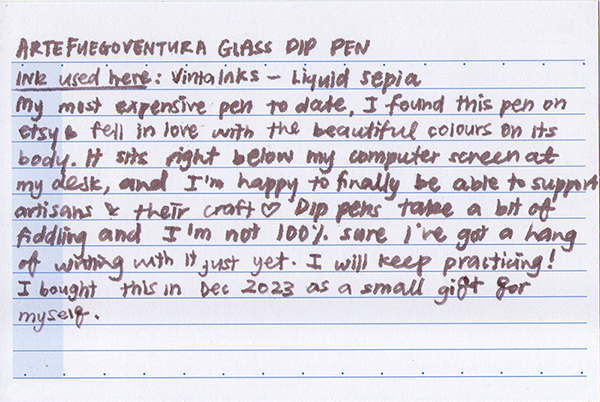 ARTEFUEGOVENTURA GLASS DIP PEN
Ink used here: Vinta Inks – Liquid Sepia
My most expensive pen to date, I found this pen on
etsy & fell in love with the beautiful colours on its
body. It sits right below my computer screen at
my desk, and I'm happy to finally be able to support
artisans & their craft ♡ Dip pens take a bit of
fiddling and I'm not 100% sure I've got a hang
of writing with it just yet. I will keep practicing!
I bought this in Dec 2023 as a small gift for
myself.